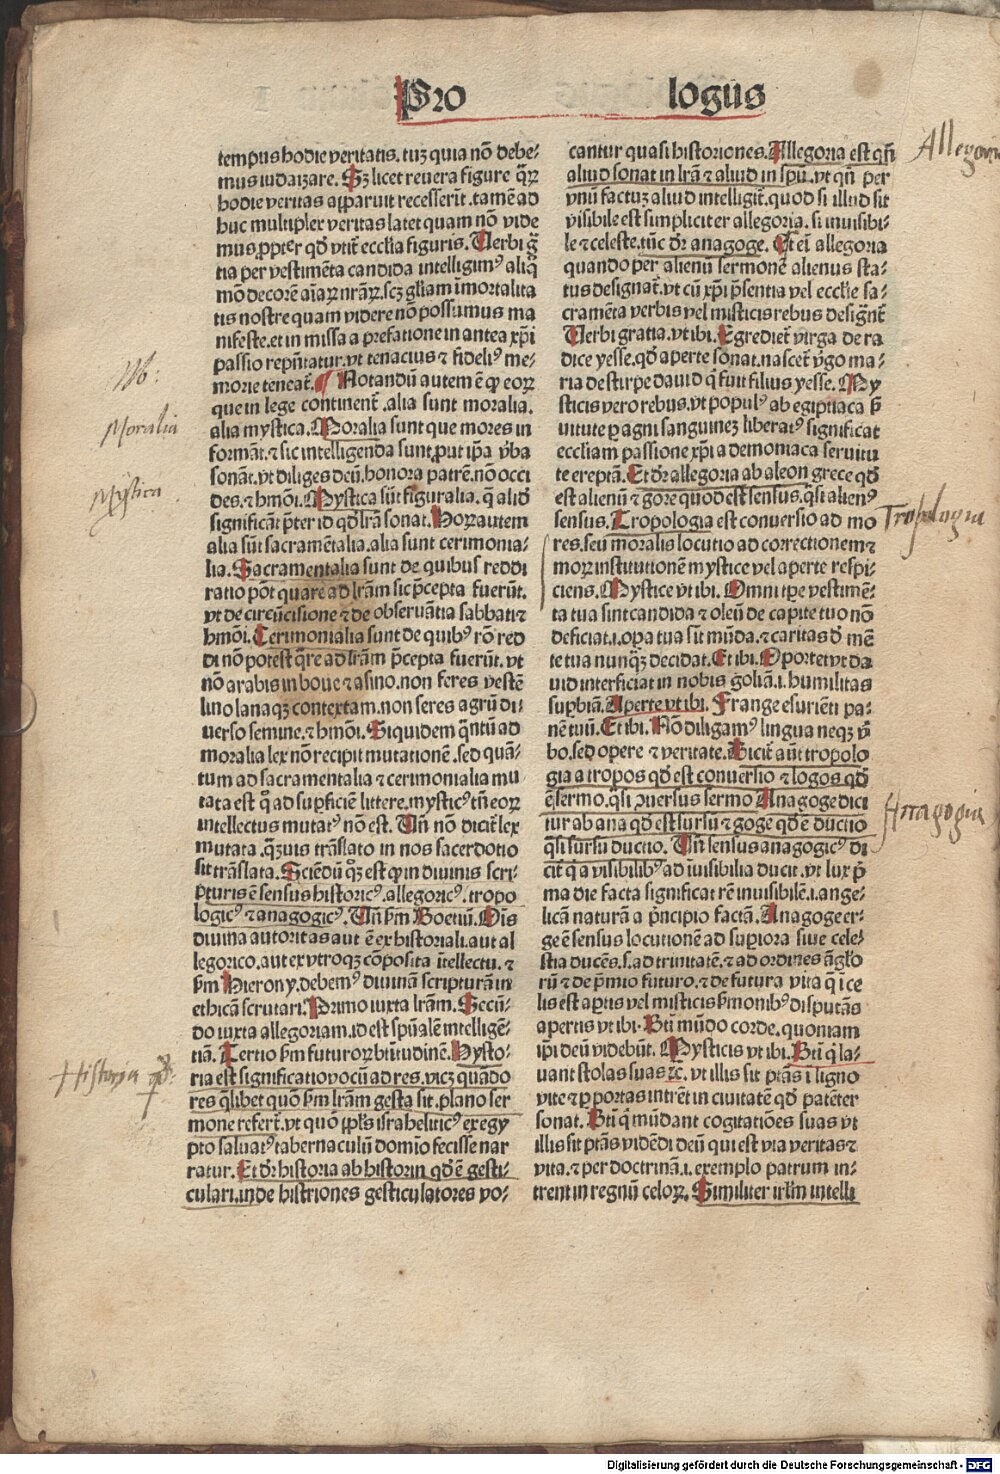 Pro logus
tempus hodie veritatis. tuʒ quia nō debe⸗
mus iudaizare. Sʒ licet revera figure q̄ꝝ
hodie veritas apparuit recesserit. tamē ad
huc multiplex veritas latet quam nō vide
mus ꝓpter qd̄ vtit̄ ecclīa figuris. Uerbi gr̄
tia per vestimēta candida intelligimꝰ aliq̄
mō decorē aīaꝝ nr̄aꝝ. scʒ glīam īmortalita
tis nostre quam videre nō possumus ma
nifeste. et in missa a prefatione in antea xp̄i
passio repn̄tatur. vt tenacius ⁊ fideliꝰ me⸗
morie teneat̄. ¶ Notandū autem ē ꝙ eoꝝ
que in lege continent̄. alia sunt moralia.
alia mystica. Moralia sunt que mores in
formāt. ⁊ sic intelligenda sunt ꝓut ip̄a v̄ba
sonāt. vt diliges deū. honora patrē. nō occi
des. ⁊ hmōi. Mystica sūt figuralia. q̄ aliqd̄
significāt p̄ter id qd̄ lr̄am sonat. Hoꝝ autem
alia sūt sacramētalia. alia sunt cerimonia⸗
lia. Sacramentalia sunt de quibus reddi
ratio pōt quare ad lr̄am sic p̄cepta fuerūt.
vt de circūcisione ⁊ de observātia sabbati ⁊
hmōi. Cerimonialia sunt de quibꝰ rō red
di nō potest q̄re ad lr̄am p̄cepta fuerūt. vt
nō arabis in bove ⁊ asino. non feres vestē
lino lanaqʒ contextam. non seres agrū di⸗
verso semine. ⁊ hmōi. Siquidem q̄ntū ad
moralia lex nō recipit mutationē. sed quā⸗
tum ad sacramentalia ⁊ cerimonialia mu
tata est q̄ ad supficiē littere. mysticꝰ tn̄ eoꝝ
intellectus mutatꝰ nō est. Un̄ nō dicit̄ lex
mutata. qʒuis trāslato in nos sacerdotio
sit trāslata. Sciēdū qʒ est ꝙ in divinis scri⸗
pturis ē sensus historicꝰ. allegoricꝰ. tropo
logicꝰ ⁊ anagogicꝰ. Un̄ sm̄ Boetiū. Oīs
divina autoritas aut ē ex historiali. aut al
legorico. aut ex vtroqʒ cōposita ītellectu. ⁊
sm̄ Hierony. debemꝰ divinā scripturā in
ethicā scrutari. Primo iuxta lr̄am. Secū⸗
do iuxta allegoriam. id est spūalē intelligē⸗
tiā. Tertio sm̄ futuroꝝ btītudinē. Hysto⸗
ria est significatio vocū ad res. vicʒ quādo
res q̄libet quō sm̄ lr̄am gesta sit. plano ser
mone refert̄. vt quō ppl̄s israheliticꝰ ex egy
pto salvatꝰ tabernaculū domīo fecisse nar
ratur. Et dr̄ historia ab historin qd̄ ē gesti⸗
culari. inde histriones gesticulatores vo⸗
cantur quasi historiones. Allegoria est qn̄
aliud sonat in lr̄a ⁊ aliud in spū. vt qn̄ per
vnū factuʒ aliud intelligit̄. quod si illud sit
visibile est simpliciter allegoria. si invisibi⸗
le ⁊ celeste. tūc dr̄ anagoge. Est eī allegoria
quando per alienū sermonē alienus sta⸗
tus designat̄. vt cū xp̄i p̄sentia vel ecclīe sa⸗
cramēta verbis vel misticis rebus design̄t̄
Uerbi gratia. vt ibi. Egrediet̄ virga de ra
dice yesse. qd̄ aperte sonat. nascet̄ v̄go ma⸗
ria de stirpe david q̄ fuit filius yesse. My
sticis vero rebus. vt populꝰ ab egiptiaca s̄
vitute ꝑ agni sanguineʒ liberatꝰ significat
eccliam passione xp̄i a demoniaca servitu
te ereptā. Et dr̄ allegoria ab aleon grece qd̄
est alienū ⁊ gore quod est sensus. q̄si alienꝰ
sensus. Tropologia est conversio ad mo
res. seu moralis locutio ad correctionem ⁊
moꝝ institutionē mystice vel aperte respi⸗
ciens. Mystice vt ibi. Omni tp̄e vestimē⸗
ta tua sint candida ⁊ oleū de capite tuo nō
deficiat. i. op̄a tua sīt mūda. ⁊ caritas d̄ mē
te tua nunqʒ decidat. Et ibi. Oportet vt da
vid interficiat in nobis goliā. i. humilitas
supbiā. Aperte vt ibi. Frange esurienti pa⸗
nē tuū. Et ibi. Nō diligamꝰ lingua neqʒ v̄
bo. sed opere ⁊ veritate. Dicit̄ aūt tropolo
gia a tropos qd̄ est conversio ⁊ logos qd̄
ē sermo. q̄si ꝯversus sermo Anagoge dici
tur ab ana qd̄ est sursū ⁊ goge qd̄ ē ductio
q̄si sursū ductio. Un̄ sensus anagogicꝰ di
cit̄ q̄ a visibilibꝰ ad īuisibilia ducit. vt lux p̄
ma die facta significat rē invisibilē. i. ange⸗
licā naturā a p̄ncipio factā. Anagoge er⸗
ge ē sensus locutionē ad supiora sive cele⸗
stia ducēs. s. ad trinitatē. ⁊ ad ordines āglo
rū ⁊ de p̄mio futuro. ⁊ de futura vita q̄ i ce
lis est apertis vel misticis s̄monibꝰ disputās
apertis vt ibi. Bt̄i mūdo corde. quoniam
ip̄i deū videbūt. Mysticis vt ibi. Bt̄i q̄ la⸗
vant stolas suas ⁊c̄. vt illis sit ptās ī ligno
vite ⁊ ꝑ portas intrēt in civitatē qd̄ patēter
sonat. Bt̄i q̄ mūdant cogitatiōes suas vt
illis sit ptās vidēdi deū qui est via veritas ⁊
vita. ⁊ per doctrinā. i. exemplo patrum in⸗
trent in regnū celoꝝ. Similiter irl̄m intelli
Nb:
Moralia
Mystica
Historia qd̄:
Allegoria
Tropologia
Anagogia
Digitalisierung gefördert durch die Deutsche Forschungsgemeinschaft - DFG